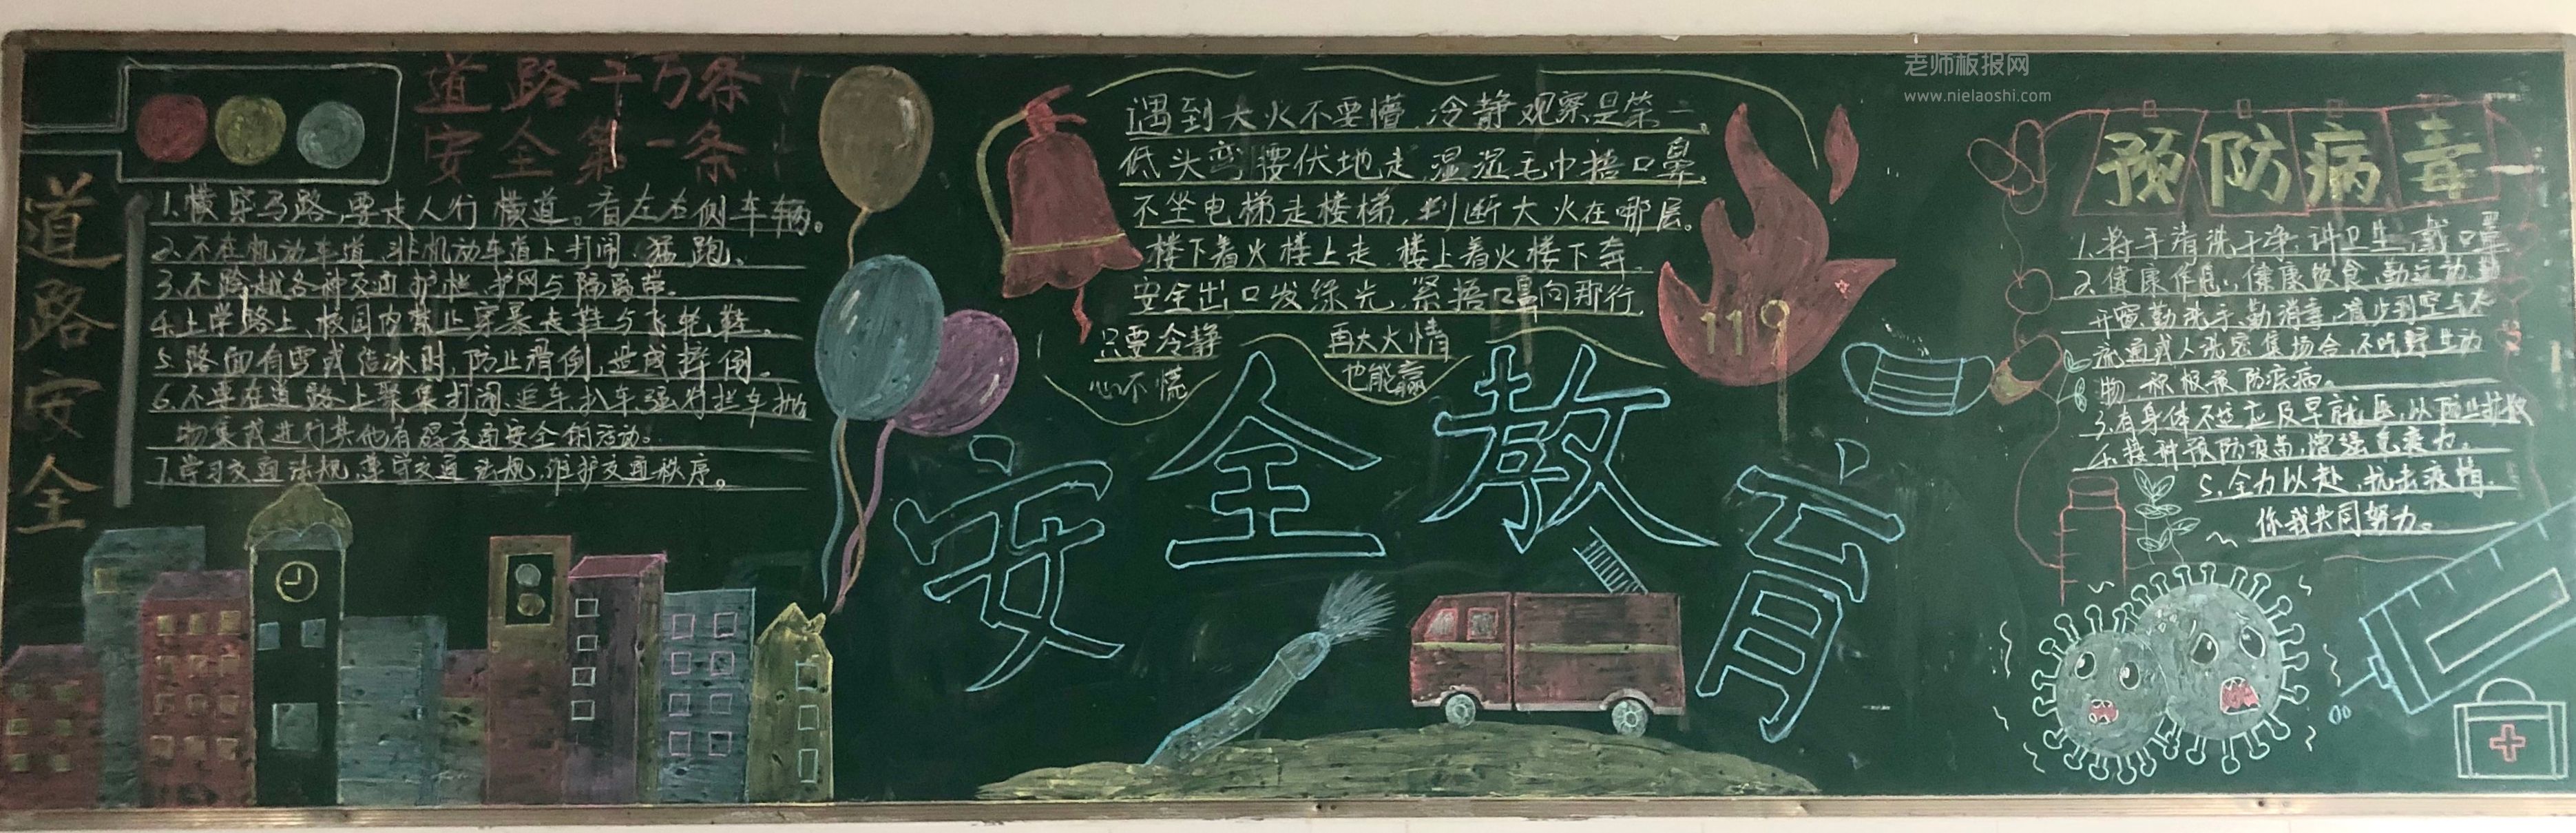 老师板报网
www.nielaoshi.com
道路千万条
安全第一条
道路安全
1.横穿马路,要走人行横道。看左右侧车辆。
2.不在机动车道,非机动车道上打闹、猛跑。
3.不跨越各种交通护栏、护网与隔离带。
4.上学路上,校园内禁止穿暴走鞋与飞轮鞋。
5.路面有雪或结冰时,防止滑倒,造成摔倒。
6.不要在道路上聚集打闹、追车、扒车、强行拦车抛
物集或进行其他有碍交通安全的活动。
7.学习交通法规,遵守交通法规,维护交通秩序。
遇到大火不要懵,冷静观察是第一、
低头弯腰伏地走,湿沉毛巾捂口鼻、
不坐电梯走楼梯,判断大火在哪层。
楼下着火楼上走,楼上着火楼下奔、
安全出口发绿光,紧捂口鼻向那行
只要冷静
心不慌
再大火情
也能赢
119
安全教育
预防病毒
1.将手清洗干净,讲卫生,戴口罩
2.健康作息,健康饮食,勤运动,勤
开窗,勤洗手,勤消毒,
流通或人流密集场合,不吃野生动
物,积极预防疾病。
3.有身体不适应及早就医,以防止扩散
4.接种预防疫苗,增强免疫力。
5.全力以赴,抗击疫情、
你我共同努力。